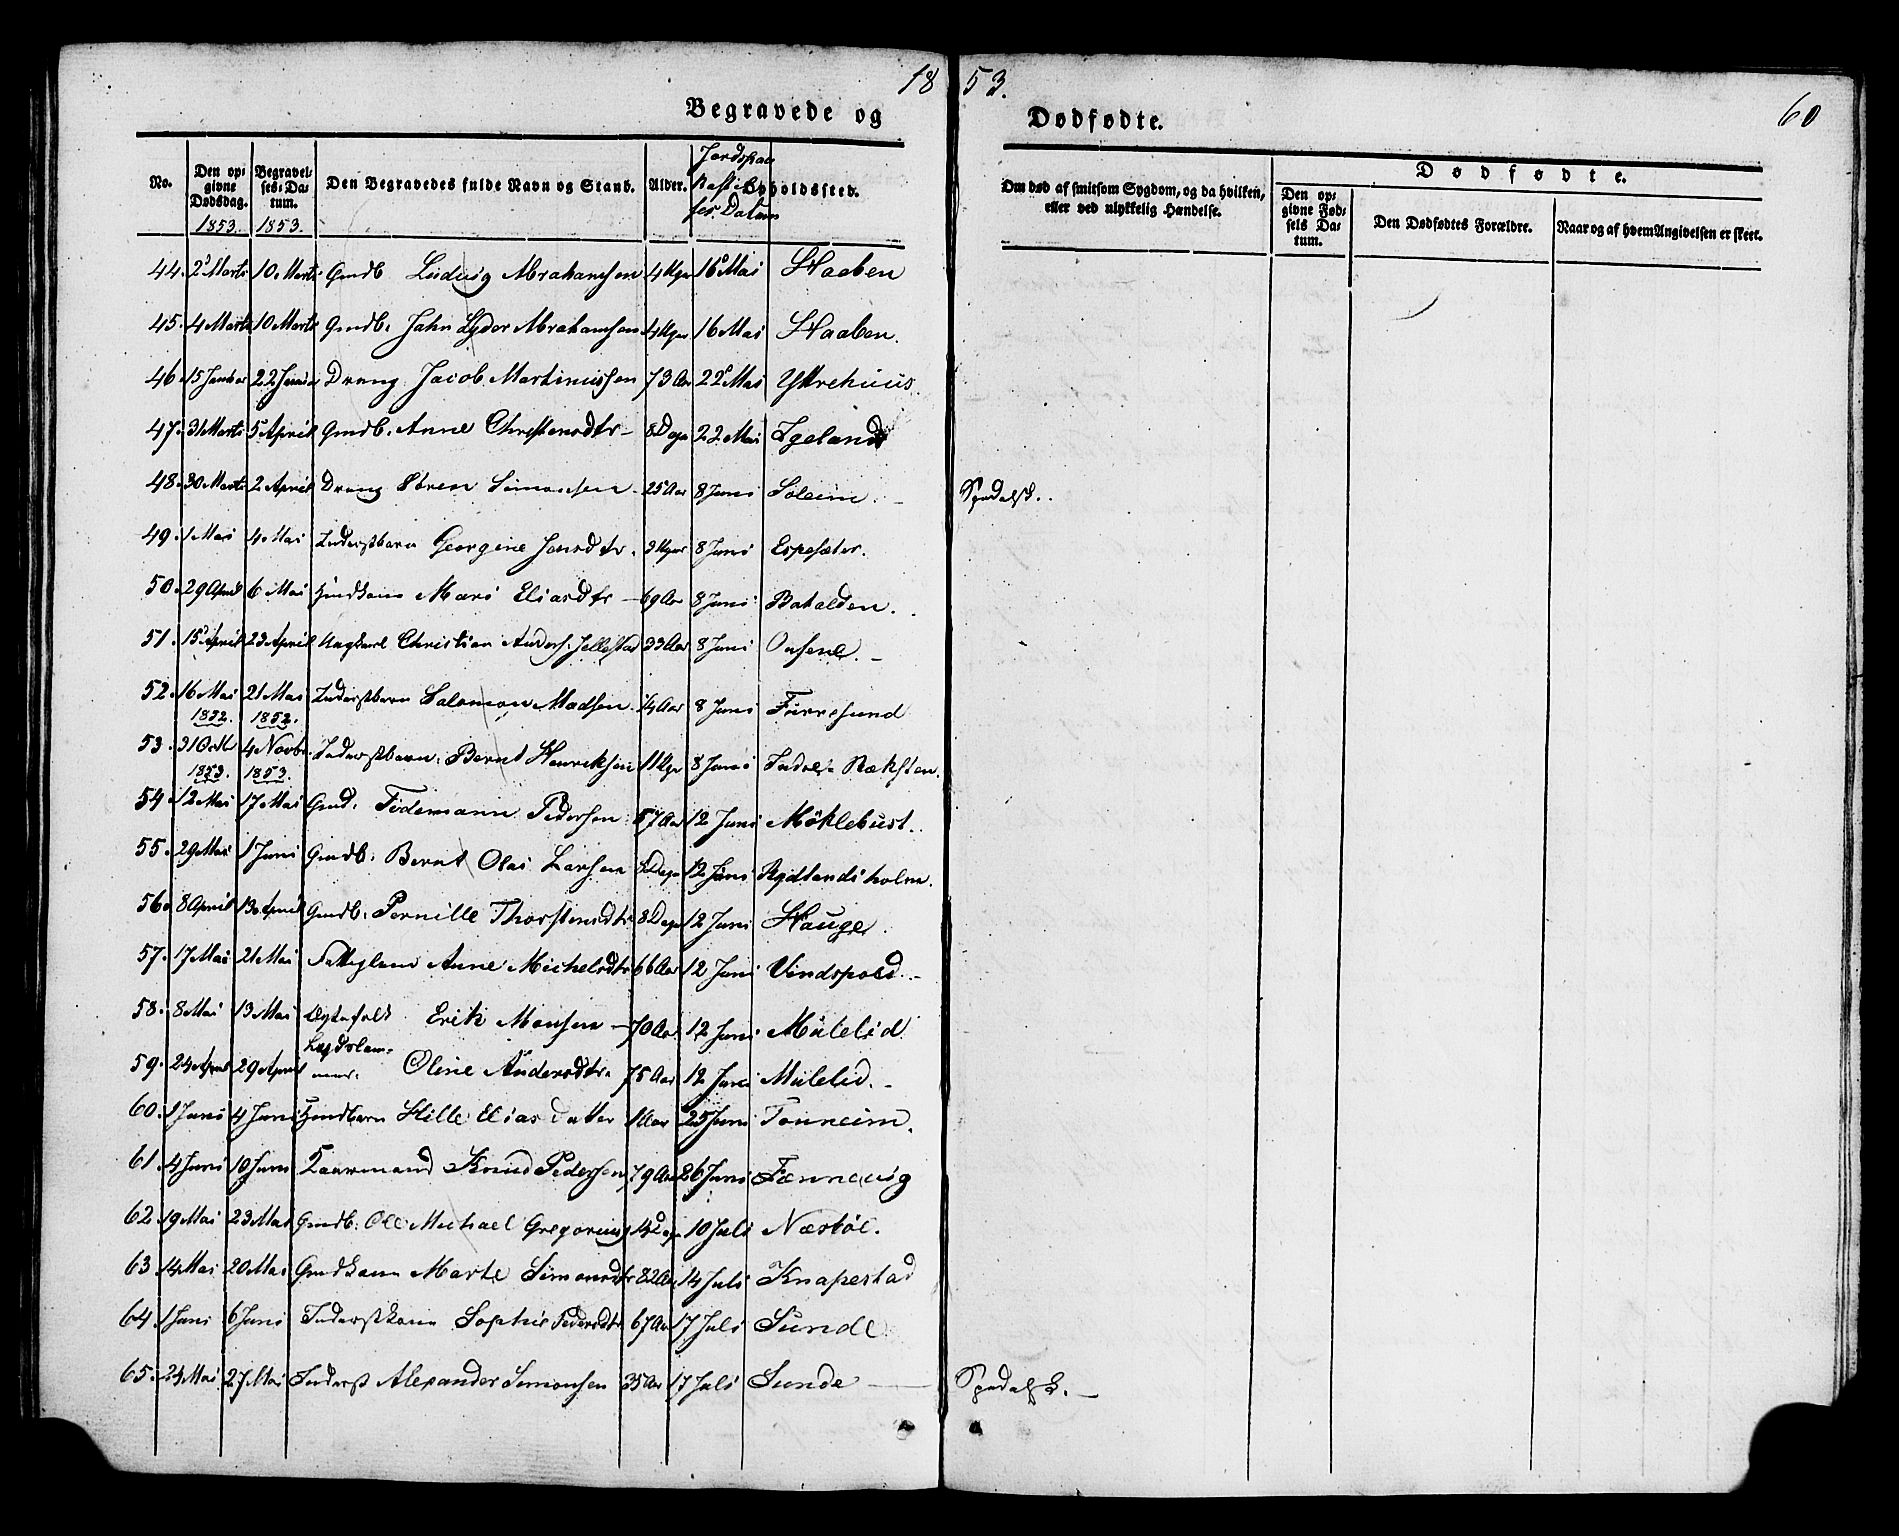 1853.
60
Begravede og Dødfødte.
No.
Den opgivne Dødsdag. 1853.
Begravelses-Datum. 1853.
Den Begravedes fulde Navn og Stand.
Alder.
Jordspaakastelses Datum
Opholdssted.
Om død af smitsom Sygdom, og da hvilken, eller ved ulykkelig Hændelse.
Dødfødte.
Den opgivne Fødsels Datum.
Den Dødfødtes Forældre.
Naar og af hvem Angivelsen er skeet.
44. 2 Marts 10 Marts Gmdb Ludvig Abrahamsen 4 Uger 16 Mai Haaben
45. 4 Marts 10 Marts Gmdb. Jahn Lyder Abrahamsen 4 Uger 16 Mai Haaben.
46. 15 Januar 22 Januar Dreng Jacob Martinussen 73 Aar 22 Mai Yttrehuus.
47. 31 Marts 5 April Gmdb. Anne Christensdtr 8 Dage 22 Mai Igeland
48. 30 Marts 2 April Dreng Sören Simonsen 25 Aar 8 Juni Soleim. Spedalsk.
49. 1 Mai 4 Mai Inderstbarn Georgine Jensdtr. 3 Uger 8 Juni Espesæter.
50. 29 April 6 Mai Hmdkone Mari Eliasdtr 69 Aar 8 Juni Batalden.
51. 15 April 23 April Ungkarl Christian Anders. Jellestad 33 Aar 8 Juni
52. 16 Mai 21 Mai Inderstbarn Salomon Madsen 14 Aar 8 Juni Furresund
1852. 1852.
53. 31 Octb 4 Novbr Inderstbarn. Bernt Henriksen 11 Uger 8 Juni Indre Ræksten.
1853. 1853.
54. 12 Mai 17 Mai Gmd. Tidemann Pedersen 57 Aar 12 Juni Möklebust.
55. 29 Mai 1 Juni Gmdb. Bernt Olai Larsen 8 Dage 12 Juni Rydlandsholm.
56. 8 April 13 April Gmdb. Pernille Thorstensdtr 8 Dage 12 Juni Hauge.
57. 17 Mai 21 Mai Fattiglem Anne Michelsdtr 66 Aar 12 Juni Vindspold.
58. 8 Mai 13 Mai Erik Monsen 70 Aar 12 Juni Mulelid
59. 24 April 29 April Lægdslemmer. Oline Andersdtr. 75 Aar 12 Juni Mulelid.
60. 1 Juni 4 Juni Hmdbarn Hille Elias datter 1 Aar 25 Juni Tonneim.
61. 4 Juni 10 Juni Kaarmand Knud Pedersen 79 Aar 26 Juni Fannevig
62. 19 Mai 23 Mai Gmdb. Ole Michael Gregorius 14 Dage 10 Juli Næstöl.
63 14 Mai 20 Mai Gmdkone Marte Simonsdtr 82 Aar 14 Juli Knapestad
64. 1 Juni 6 Juni Inderstkone Sophie Pedersdtr 67 Aar 17 Juli Sunde
65. 24 Mai 27 Mai Inderst Alexander Simonsen 35 Aar 17 Juli Sunde Spedalsk.